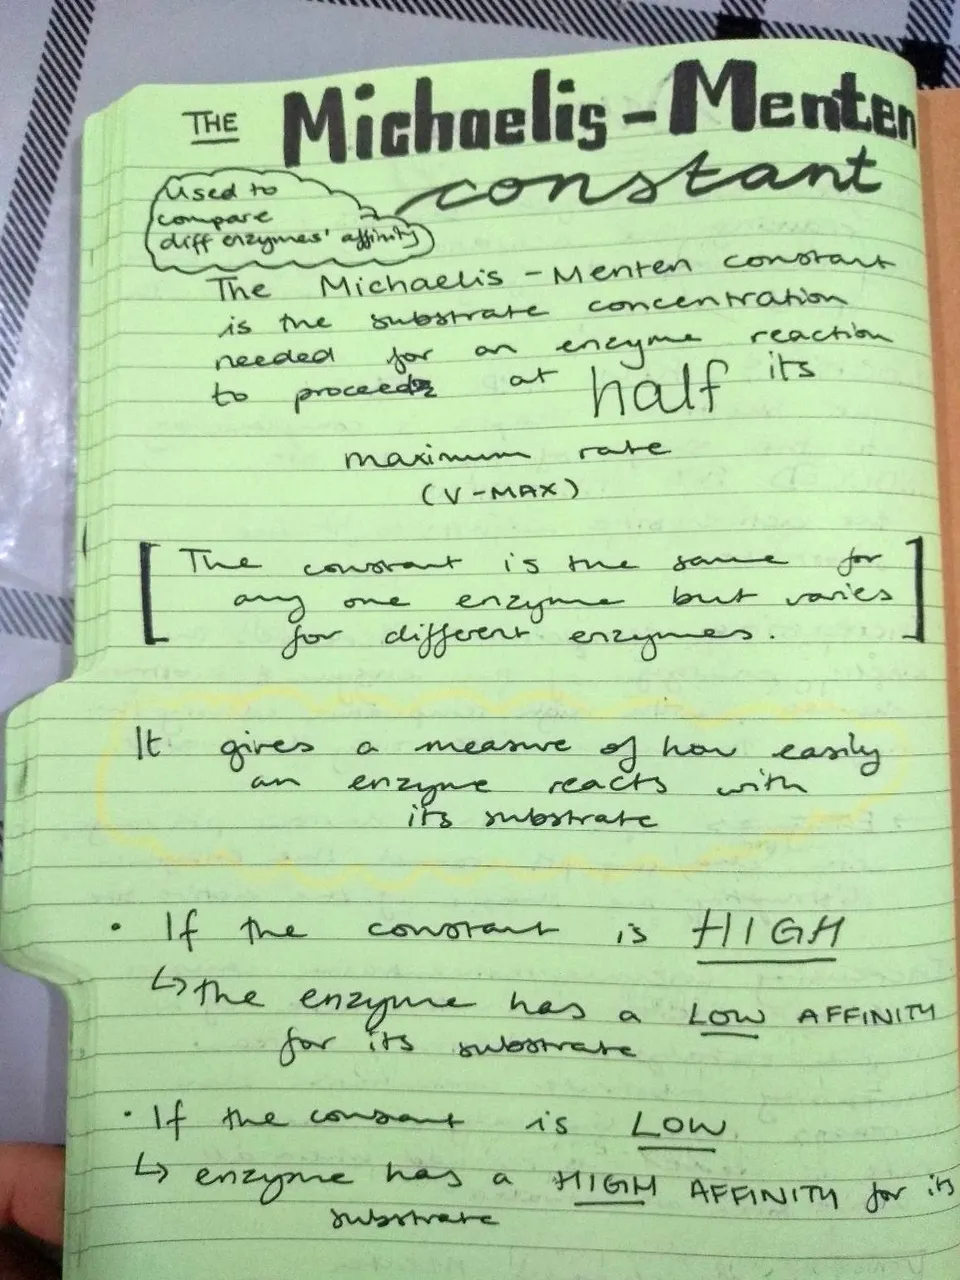 THE Michaelis-Menten
constant
Used to
compare
diff enzymes' affinity
The Michaelis-Menten constant
is the substrate concentration
needed for an enzyme reaction
to proceed at half its
maximum rate
(V-MAX)
[The constant is the same for
any one enzyme but varies
for different enzymes.]
It gives a measure of how easily
an enzyme reacts with
its substrate
• If the constant is HIGH
↳ the enzyme has a LOW AFFINITY
for its substrate
• If the consant is LOW
↳ enzyme has a HIGH AFFINITY for its
substrate